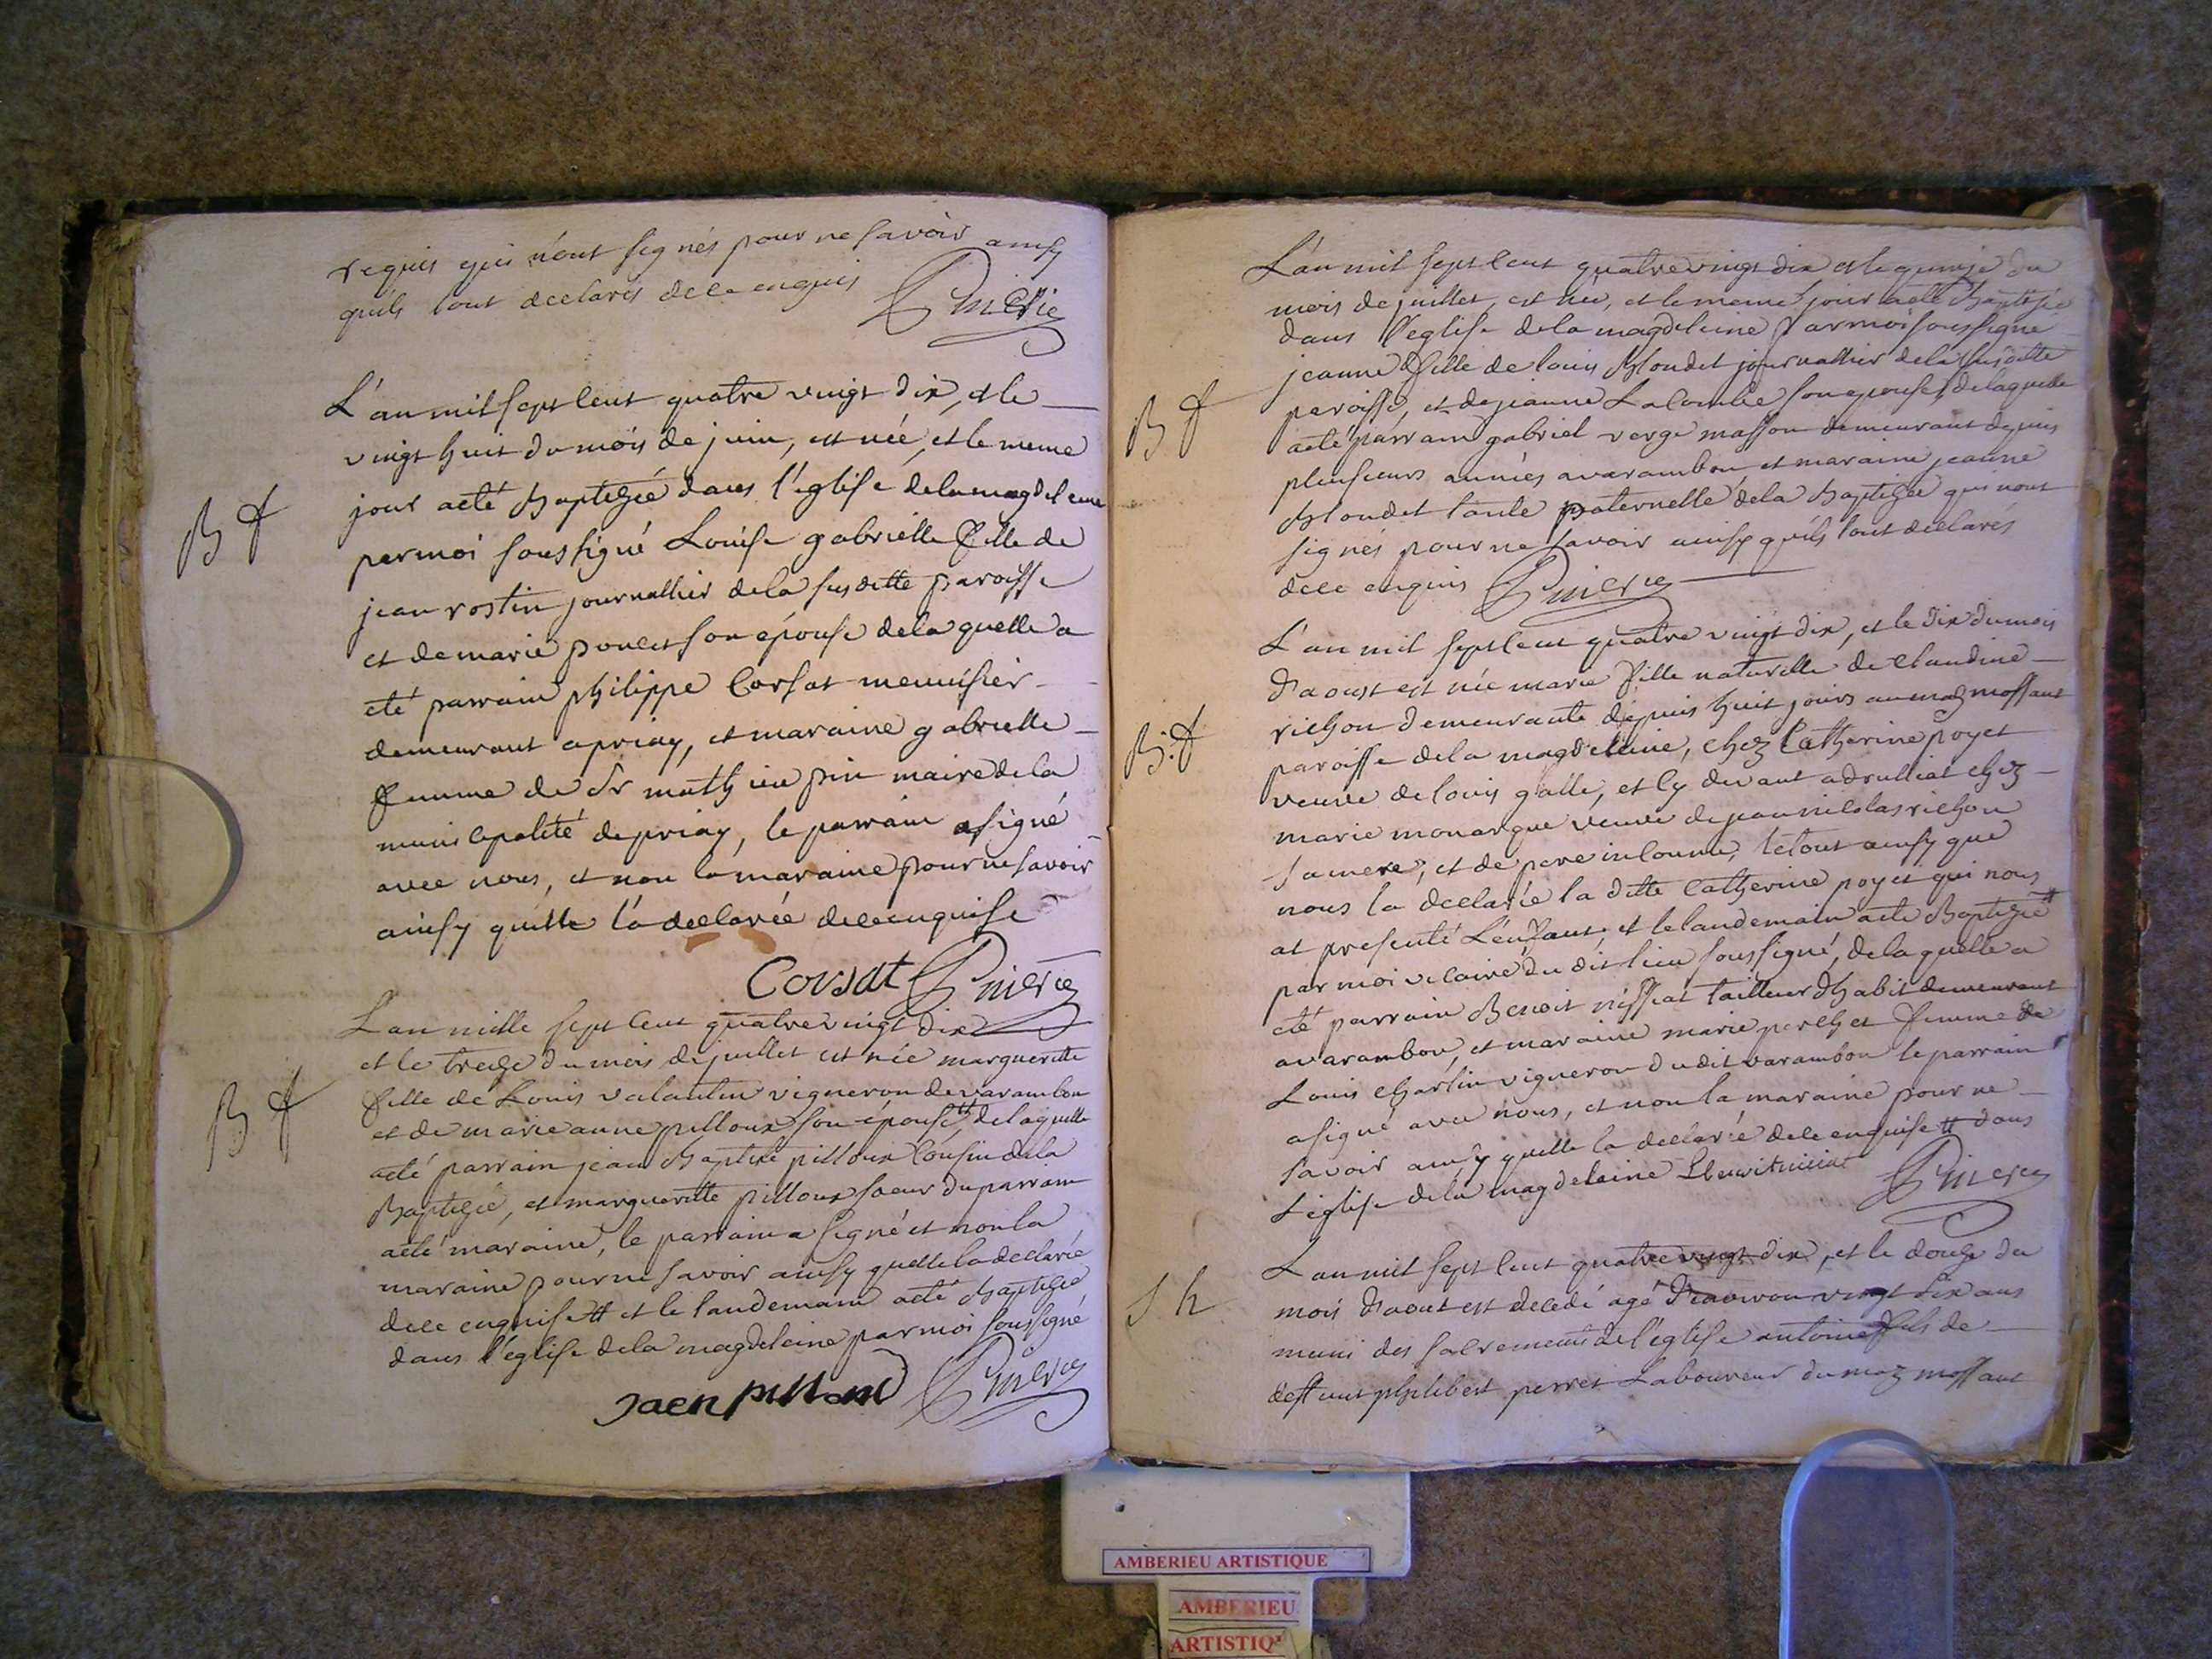 requis qui n'ont signés pour ne savoir ainsy
quils l'ont declarés de ce enquis
L'an mil sept cent quatre vingt dix, et le
vingt huit du mois de juin, est née, et le meme
B f
jour a eté baptizée dans l'eglise de la magdeleine
par moi soussigné Louise gabrielle fille de
jean rostin journallier de la susditte paroisse
et de marie poncet son épouse de la quelle a
eté parrain philippe Corsat menuisier
demeurant a priay, et maraine gabrielle
femme de Sr mathieu pin maire de la
municipalité de priay, le parrain a signé
avec nous, et non la maraine pour ne savoir
ainsy quelle l'a declarée de ce enquise
Corsat
L'an mille sept cent quatre vingt dix
et le treize du mois de juillet est née margueritte
B f
fille de Louis valantin vigneron de varambon
et de marie anne pilloux son épouse # de la quelle
a eté parrain jean baptiste pilloux cousin de la
Baptizée, et margueritte pilloux soeur du parrain
a eté maraine, le parrain a signé et non la
maraine pour ne savoir ainsy quelle la declarée
de ce enquise # et le landemain a eté baptizée
dans l'eglise de la magdeleine par moi soussigné
Jaen
L'an mil sept cent quatre vingt dix et le quinze du
mois de juillet, est née, et le meme jour a eté baptizée
dans l'eglise de la magdeleine par moi soussigné
jeanne fille de louis blondet journallier de la susditte
B f
paroisse, et de jeanne Lacombe son epouse, de la quelle
a eté parrain gabriel verge masson demeurant depuis
plusieurs années a varambon et maraine jeanne
blondet tante paternelle de la baptizée qui n'ont
signés pour ne savoir ainsy quils l'ont declarés
de ce enquis
L'an mil sept cent quatre vingt dix, et le dix du mois
d'aoust est née marie fille naturelle de Claudine
B. f
richon demeurante depuis huit jours au maz mossant
paroisse de la magdeleine, chez Catherine poyet
veuve de louis galle, et cy devant a druilliat chez
marie monarque veuve de jean nicolas richon
sa mere, et de pere inconnu, le tout ainsy que
nous la declarée la ditte Catherine poyet qui nous
at presenté L'enfant et le landemain a eté Baptizée #
par moi vicaire du dit lieu soussigné, de la quelle a
eté parrain Benoit tailleur d'habit demeurant
a varambon, et maraine marie perchet femme de
Louis Charlin vigneron du dit varambon le parrain
a signé avec nous, et non la maraine pour ne
savoir ainsy quelle la declarée de ce enquise # dans
L'eglise de la magdelaine
L'an mil sept cent quatre vingt dix, et le douze du
S h
mois d'aout est decedé agé d'environ vingt six ans
muni des sacrements de l'eglise antoine fils de
deffunt philibert perret Laboureur du maz mossant
AMBERIEU ARTISTIQUE
AMBERIEU
ARTISTIQ